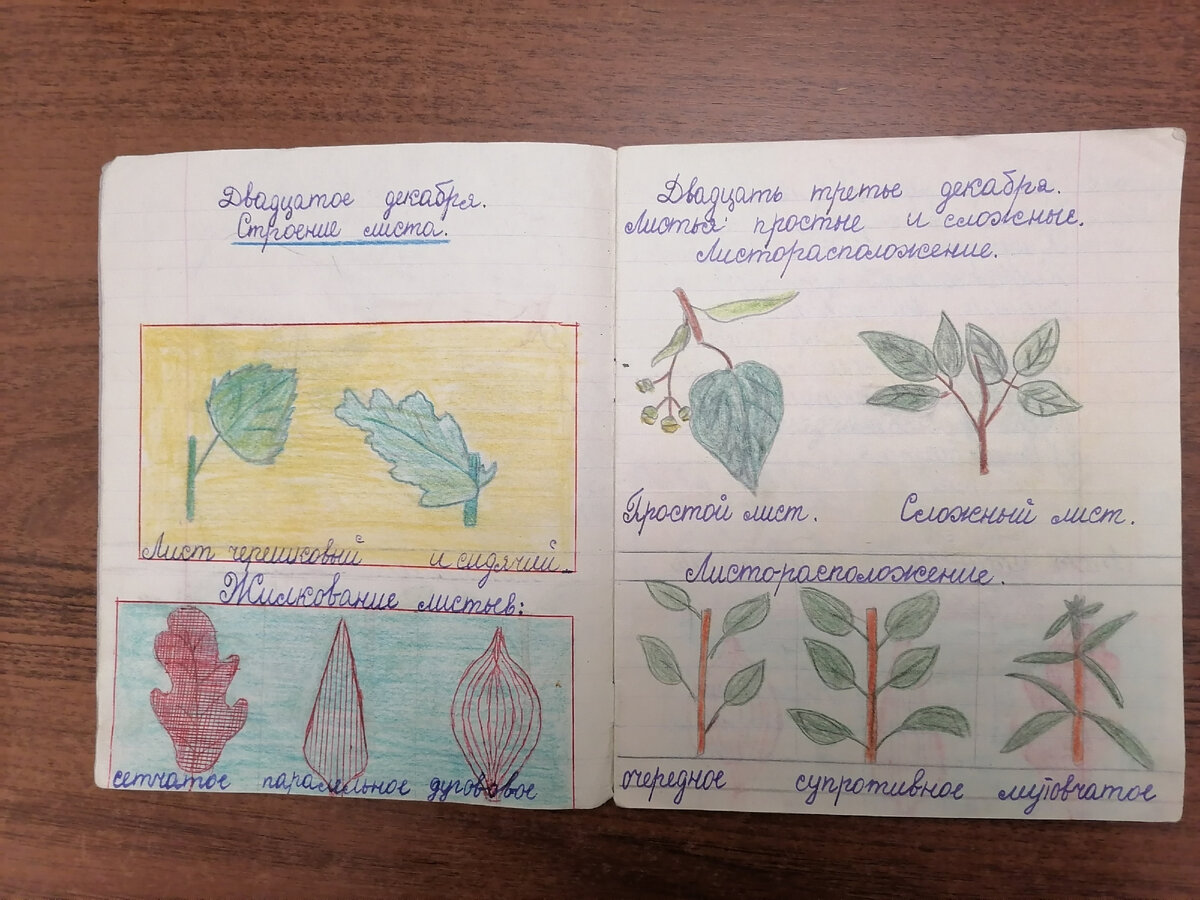 Двадцатое декабря.
Строение листа.
Лист черешковый и сидячий.
Жилкование листьев:
сетчатое паралельное дугововое
Двадцать третье декабря.
Листья простые и сложные.
Листорасположение.
Простой лист. Сложный лист.
Листорасположение.
очередное супротивное мутовчатое